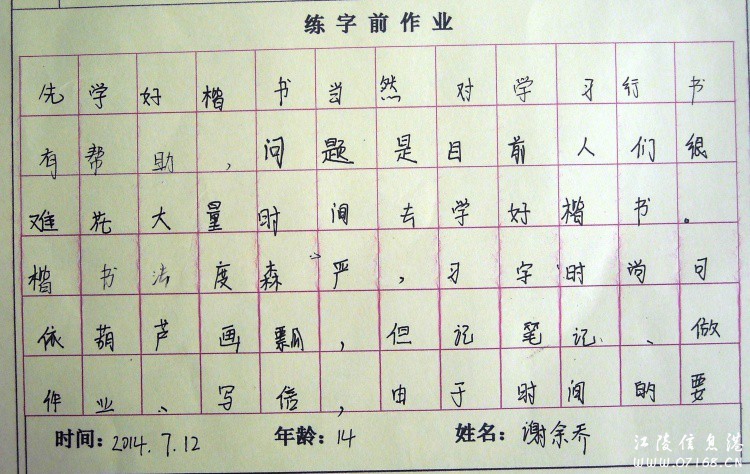 练字前作业
先学好楷书当然对学习行书
有帮助,问题是目前人们很
难花大量时间去学好楷书。
楷书法度森严,习字时尚可
依葫芦画瓢,但记笔记、做
作业、写信,由于时间的要
时间:2014.7.12 年龄:14 姓名:谢余乔
江陵信息港
WWW.07168.CN